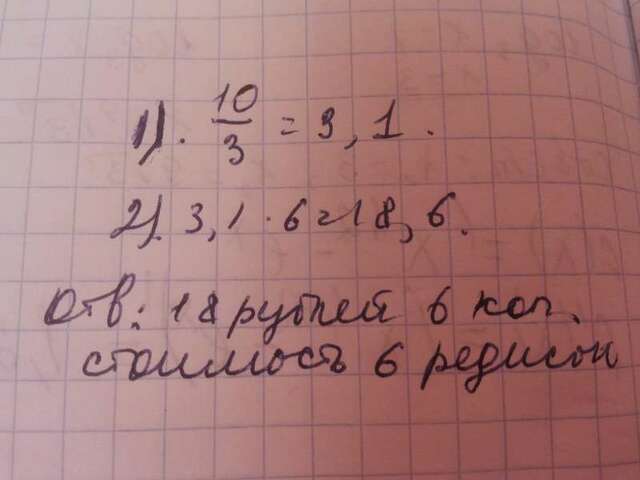 1). 10/3 = 3,1.
2). 3,1 · 6 = 18,6.
Отв: 18 рублей 6 коп.
стоимость 6 редисок